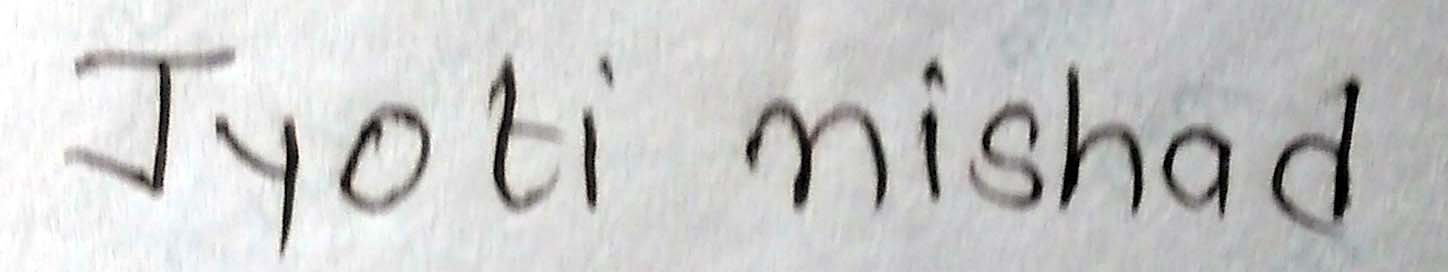 Jyoti nishad